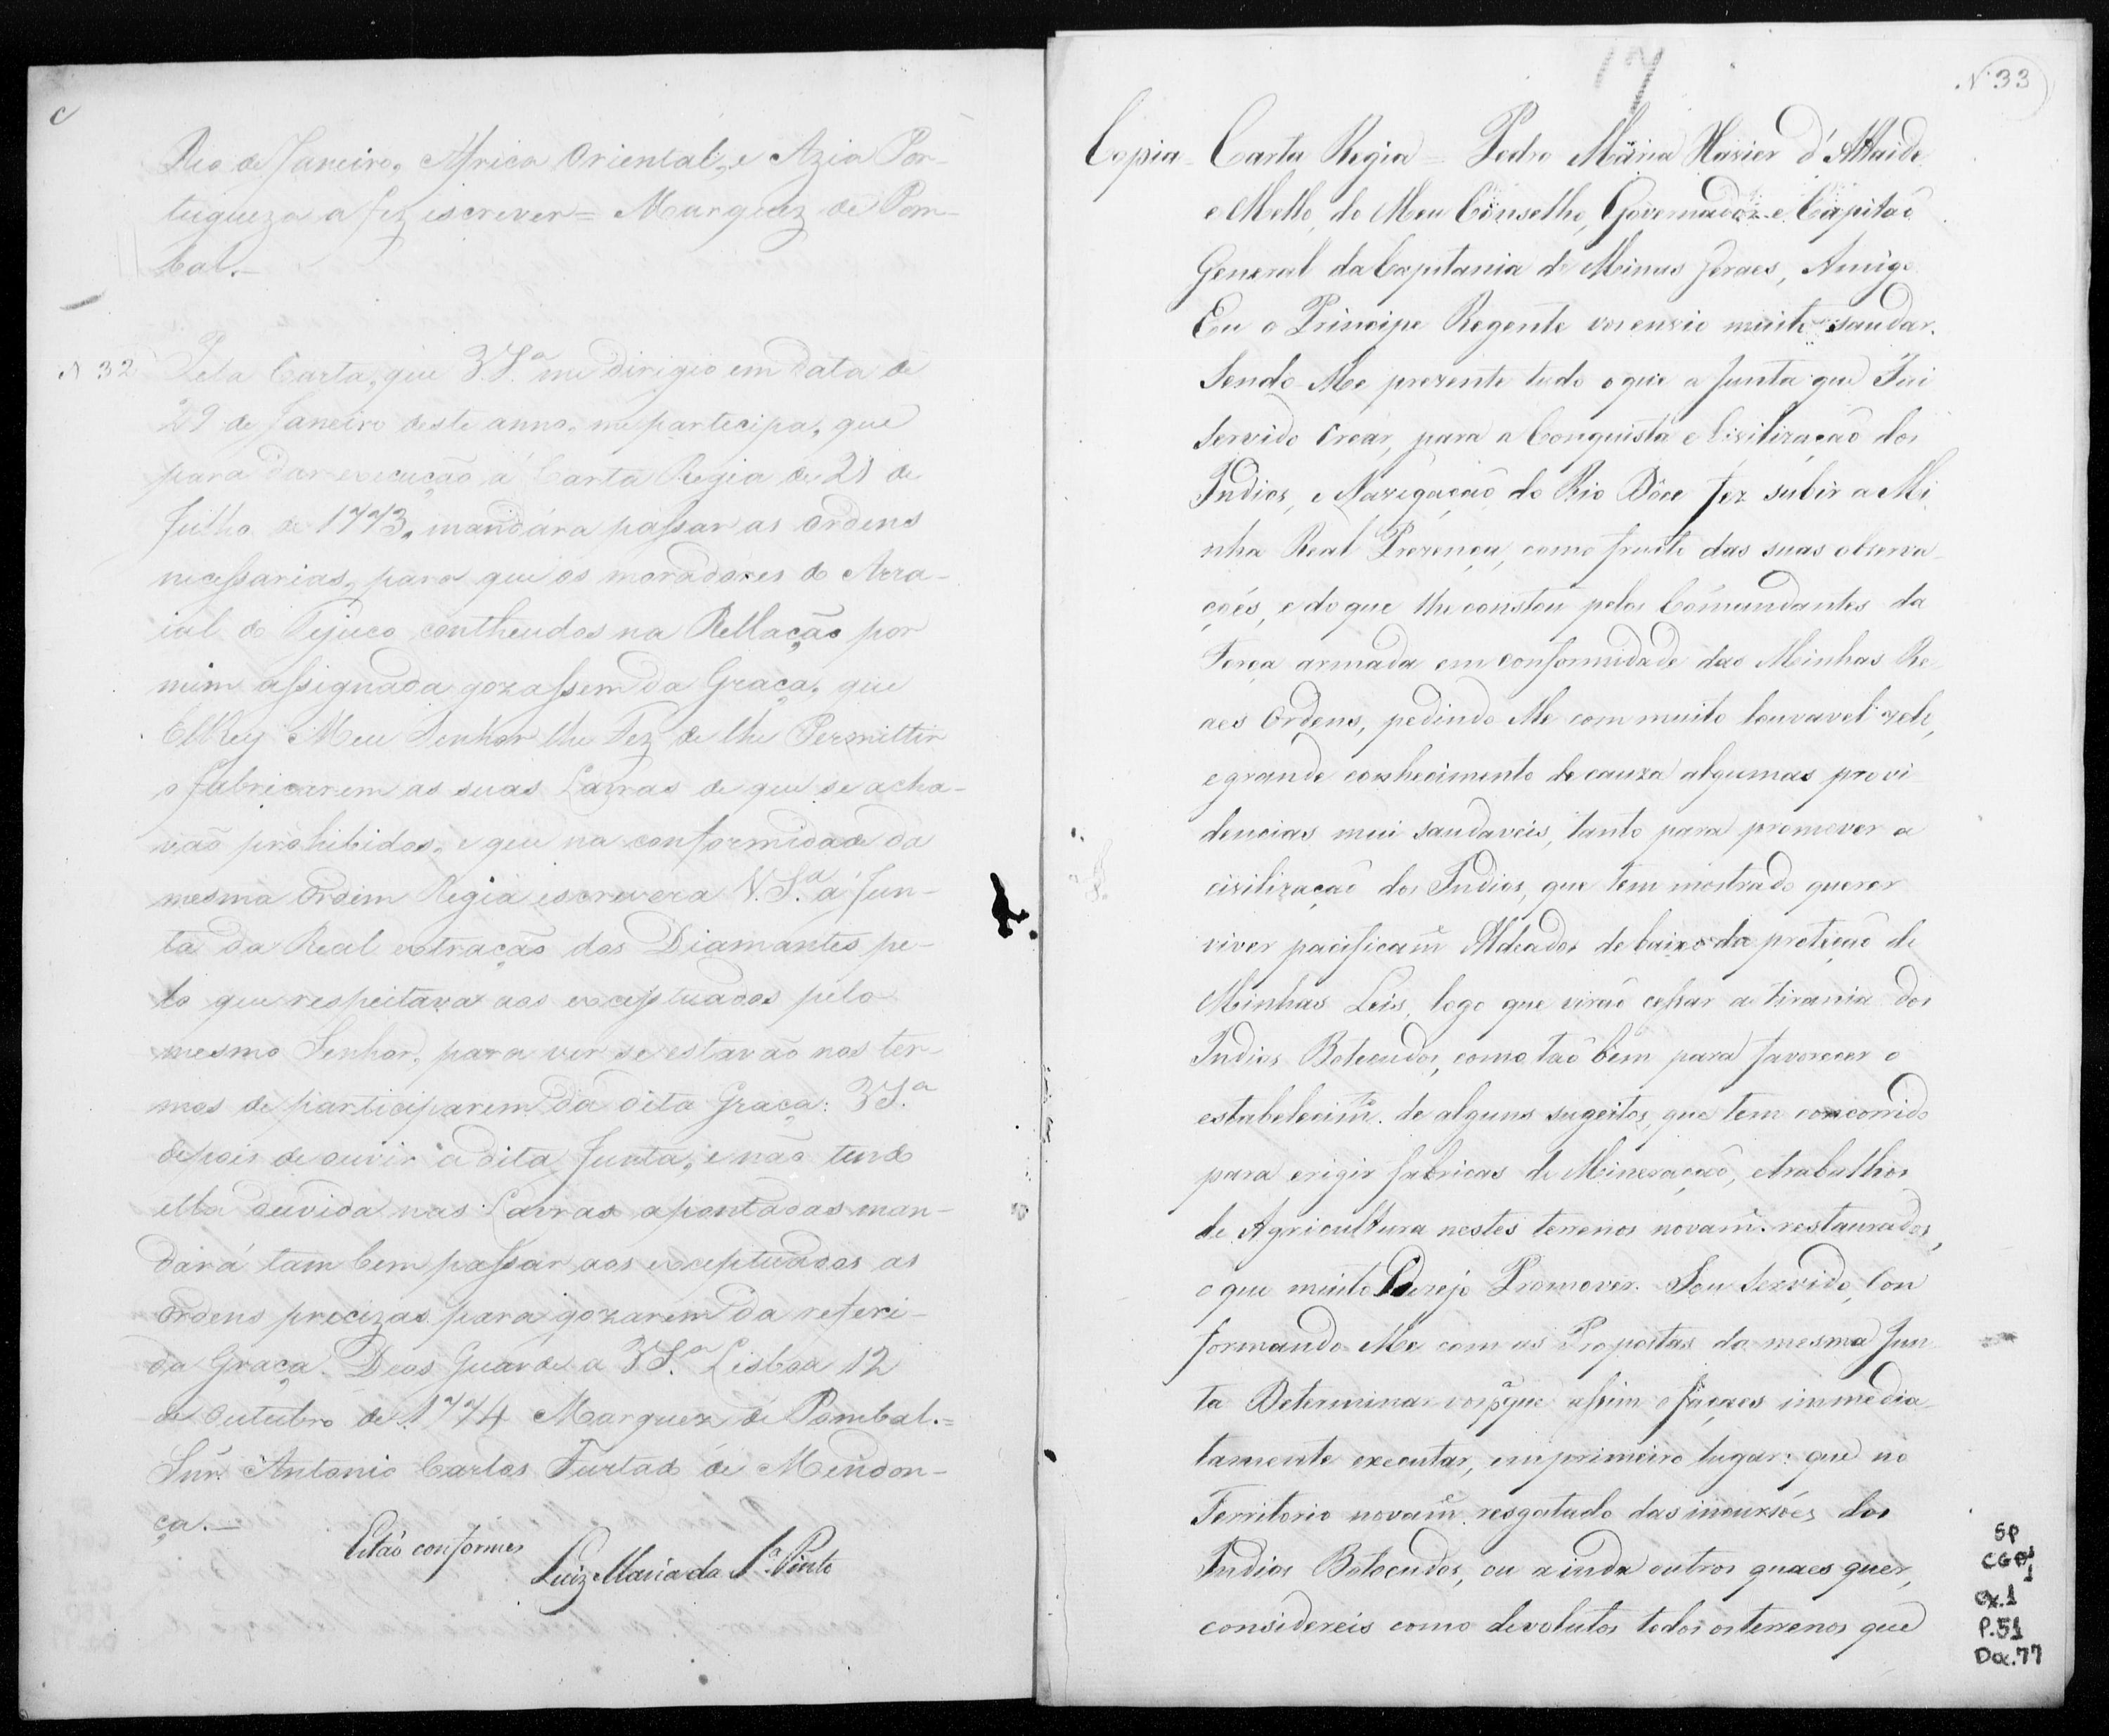 Rio de Janeiro, Africa Oriental, e Azia Por-
tugueza a fez escrever = Marquez de Pom-
bal.—
N 32 Pela Carta, que V.S.ª me dirigio em data de
29 de Janeiro deste anno, me participa, que
para dar execução á Carta Regia de 21 de
Julho de 1773, mandára passar as ordens
necessarias, para que os moradores do Arra-
ial do Tejuco contheudos na Rellação por
mim assignada gozassem da Graça, que
ElRey Meu Senhor lhe Fez de lhe Permittir
o fabricarem as suas Lavras de que se acha-
vão prohibidos, e que na conformidade da
mesma Ordem Regia escrevera V.S.ª á Jun-
ta da Real extração dos Diamantes pe-
lo que respeitava aos exceptuados pelo
mesmo Senhor, para ver se estavão nos ter-
mos de participarem da dita Graça: V.S.ª
depois de ouvir a dita Junta, e não tendo
ella duvida nas Lavras apontadas man-
dará tam bem passar aos exceptuados as
ordens precizas para gozarem da referi-
da Graça. Deos Guarde a V.S.ª Lisboa 12
de Outubro de 1774 Marquez de Pombal.=
Snr. Antonio Carlos Furtado de Mendon-
ça.—
Estão conformes
Luiz Maria da S.ª Pinto
17
N. 33
Copia - Carta Regia = Pedro Maria Xavier d'Attaide
e Mello, do Meu Conselho, Governador e Capitaõ
General da Capitania de Minas Geraes, Amigo
Eu o Principe Regente vos envio muito saudar.
Sendo-Me prezente tudo o que a Junta que Fui
servido crear, para a Conquista e Civilizaçaõ dos
Indios, e Navegaçaõ do Rio Dôce fez subir a Mi
nha Real Prezença, como fructo das suas observa
çoẽs, e do que lhe constou pelos Cõmandantes da
Força armada em conformidade das Minhas Re
aes Ordens, pedindo Me com muito louvavel zelo,
e grande conhecimento de cauza algumas provi
dencias mui saudaveis, tanto para promover a
civilizaçaõ dos Indios, que tem mostrado querer
viver pacificam.e Aldeados debaixo da proteçaõ de
Minhas Leis, logo que viraõ cessar a tirania dos
Indios Botecudos, como taõ bem para favorecer o
estabelecim.to de alguns sugeitos, que tem concorrido
para erigir fabricas de Mineraçaõ, e trabalhos
de Agricultura nestes terrenos novam.e restaurados,
o que muito Dezejo Promover. Sou Servido, Con
formando Me com as Propostas da mesma Jun
ta Determinar vos, que assim o façaes immedia
tamente executar, em primeiro lugar: que no
Territorio novam.e resgatado das incursoẽs dos
Indios Botocudos, ou ainda outros quaes quer,
considereis como devolutos todos os terrenos que
SP
CGP1
cx.1
P.51
Doc.77